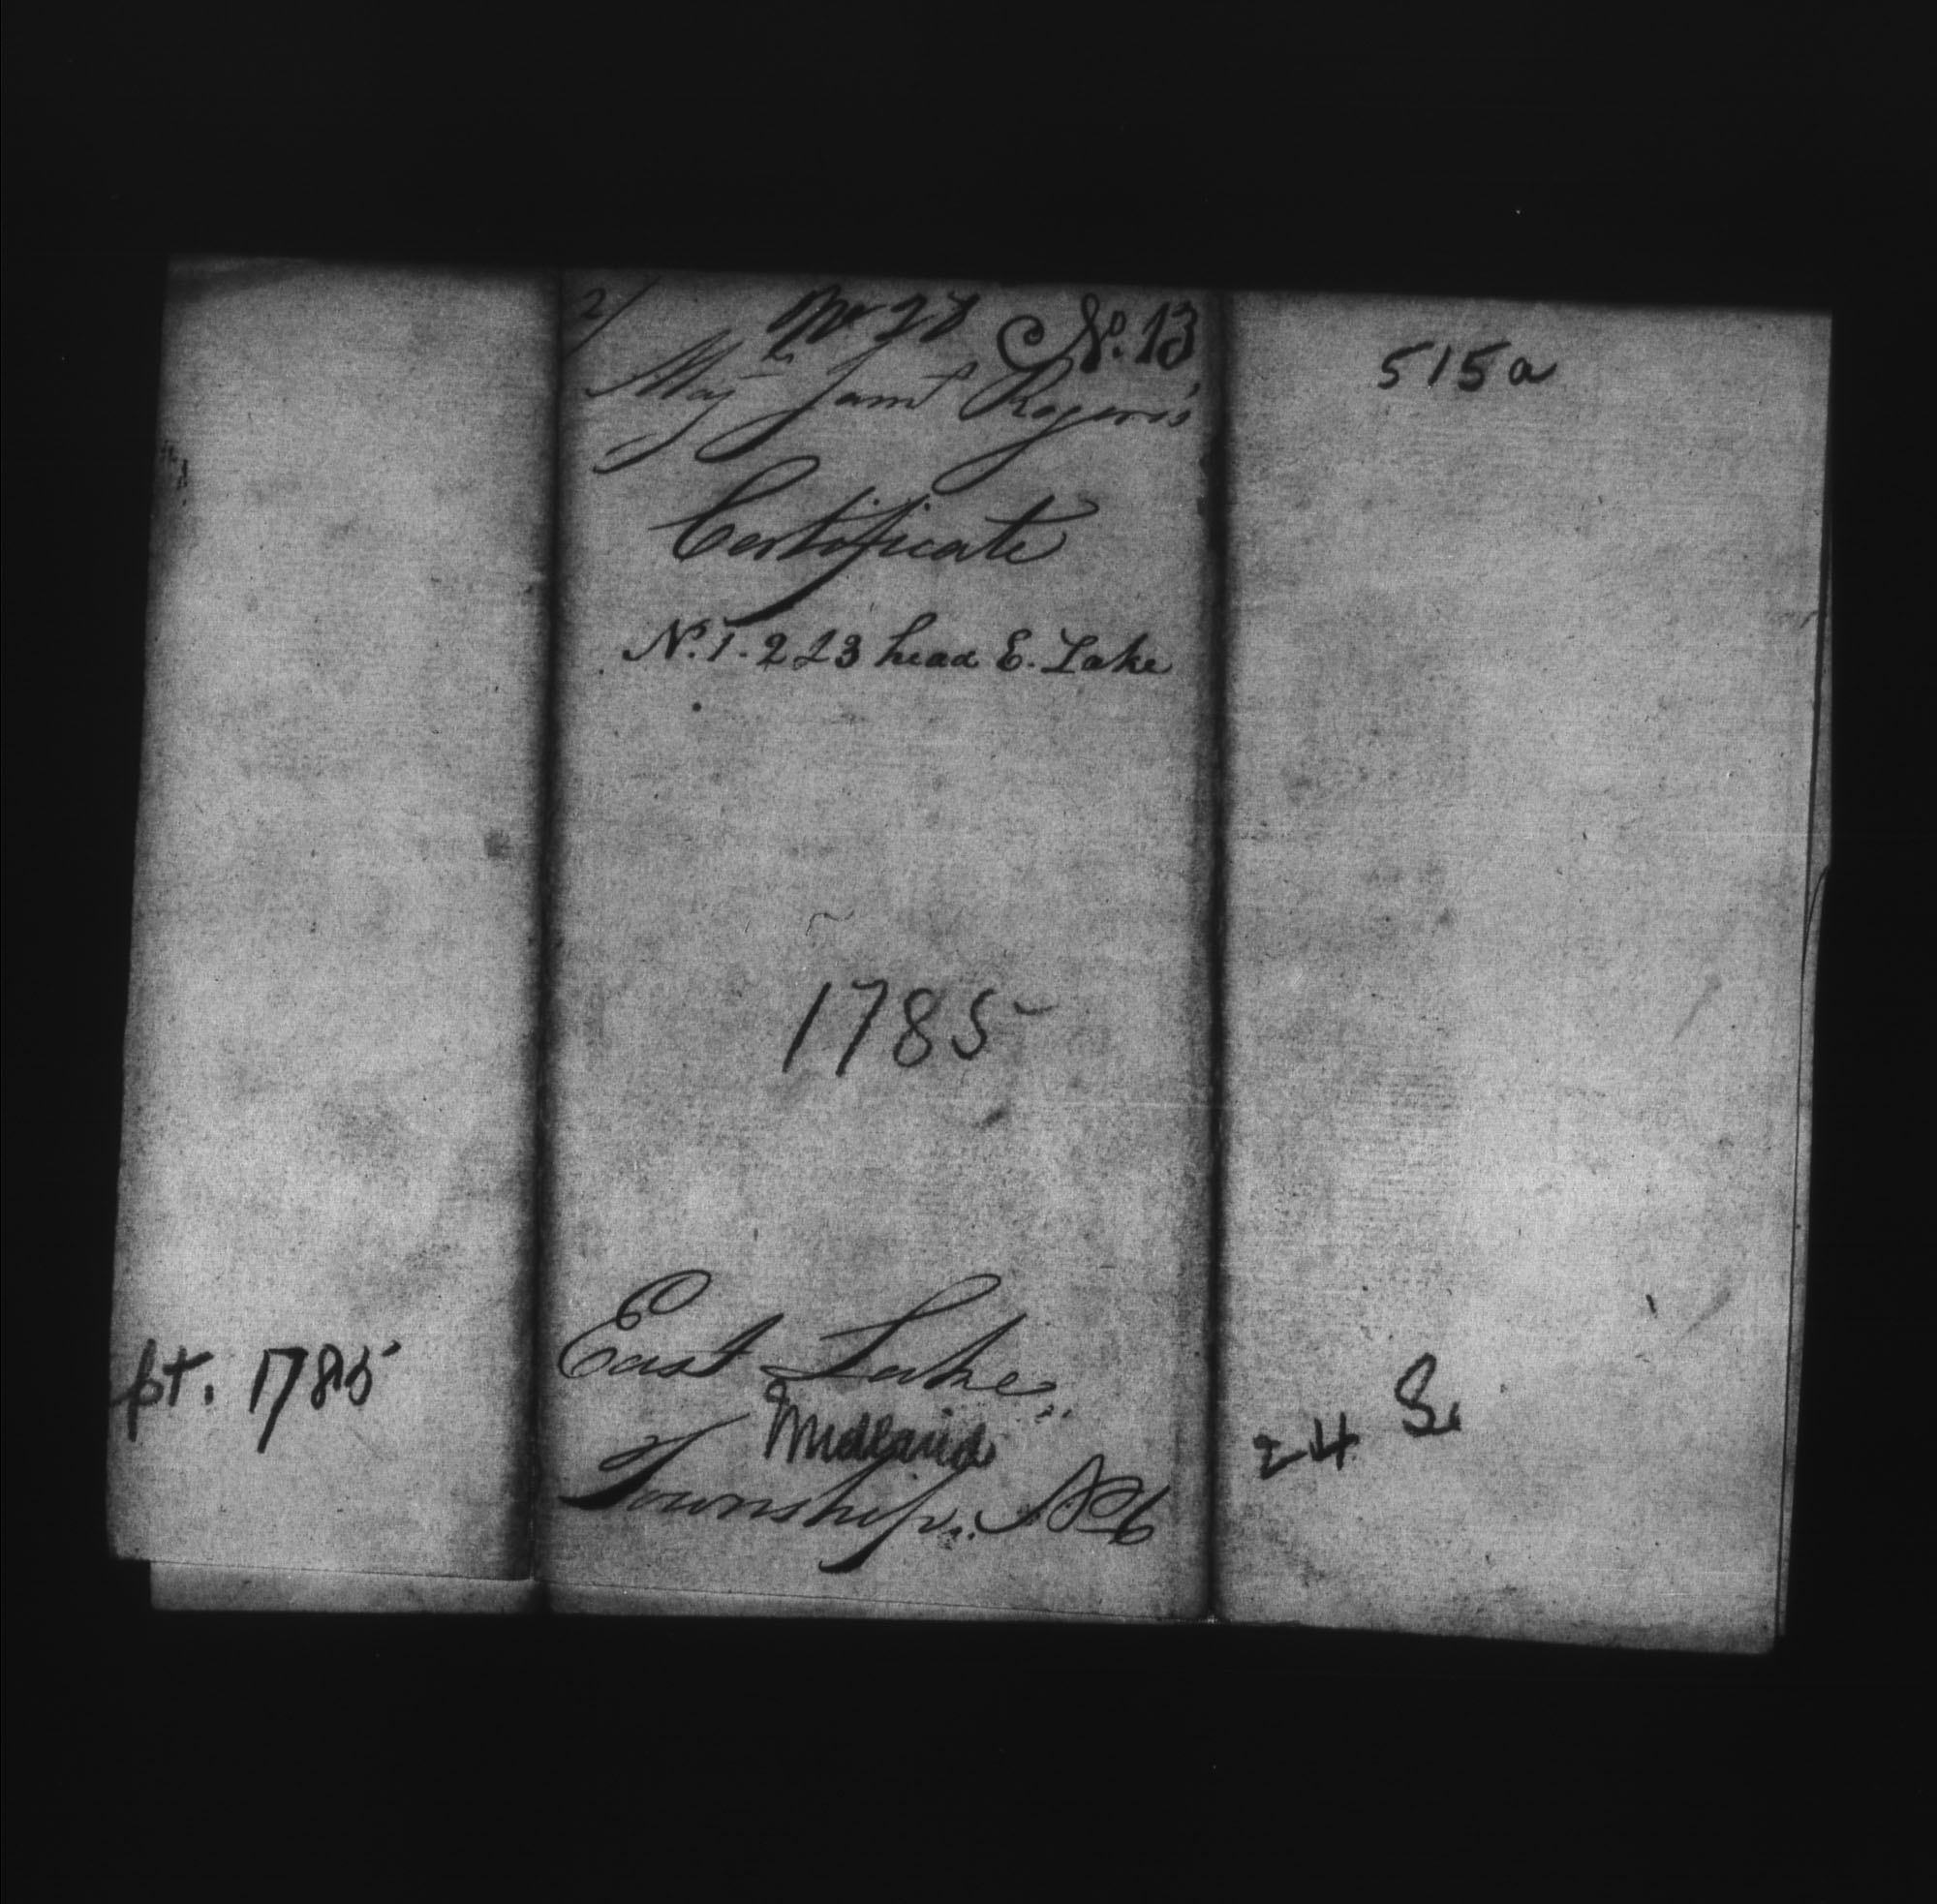 2/
No. 27 No. 13
Majr Jams Rogers's
Certificate
N. 1. 2 & 3 head E. Lake
1785
East Lake
Midland
Township
515a
pt. 1785
24